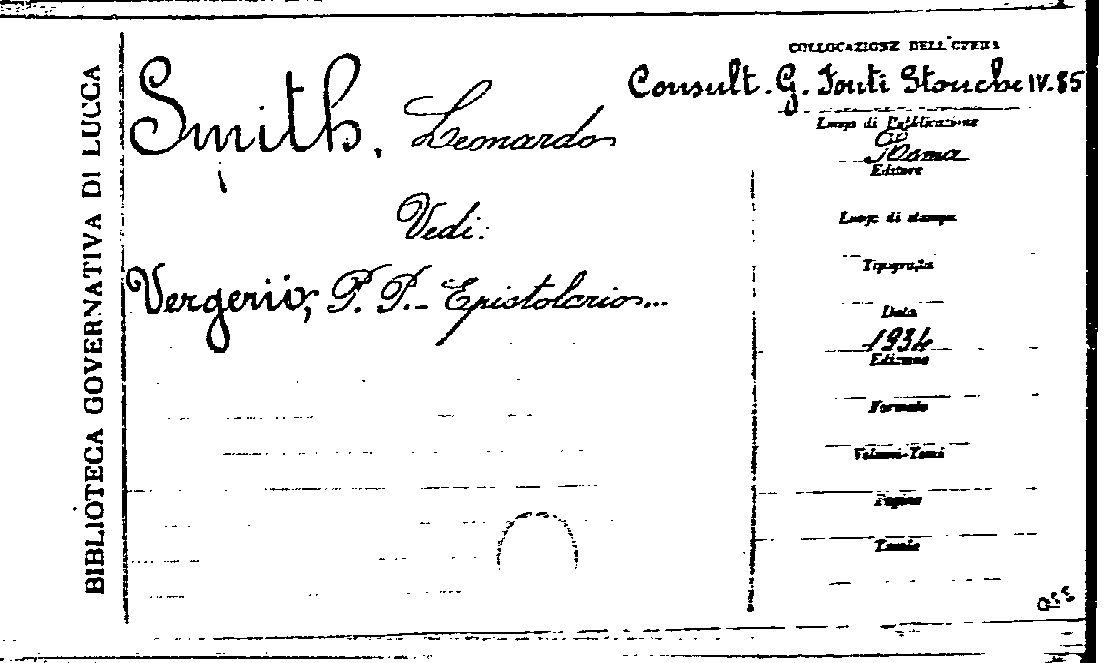 BIBLIOTECA GOVERNATIVA DI LUCCA
COLLOCAZIONE DELL'OPERA
Consult. G. Fonti Storiche IV. 85
Smith, Leonardo
Vedi:
Vergerio, P. P. - Epistolario...
Luogo di Pubblicazione
Roma
Editore
Luogo di stampa
Tipografia
Data
1934
Edizione
Formato
Volumi-Tomi
Pagine
Tavole